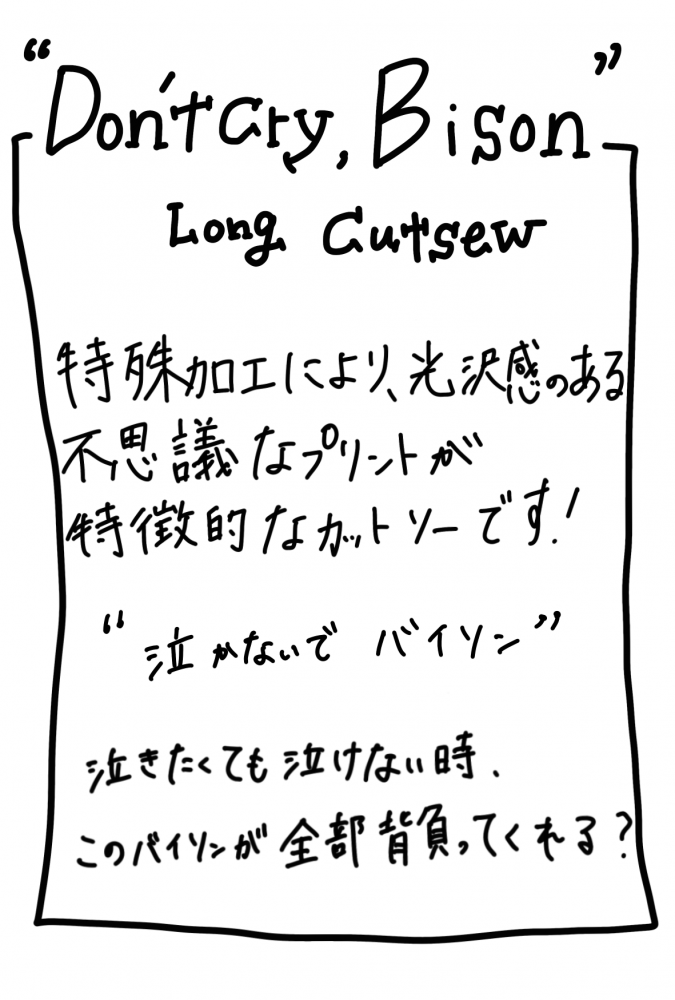 “Don't Cry, Bison”
Long Cutsew
特殊加工により、光沢感のある
不思議なプリントが
特徴的なカットソーです!
“泣かないで バイソン”
泣きたくても泣けない時、
このバイソンが全部背負ってくれる?